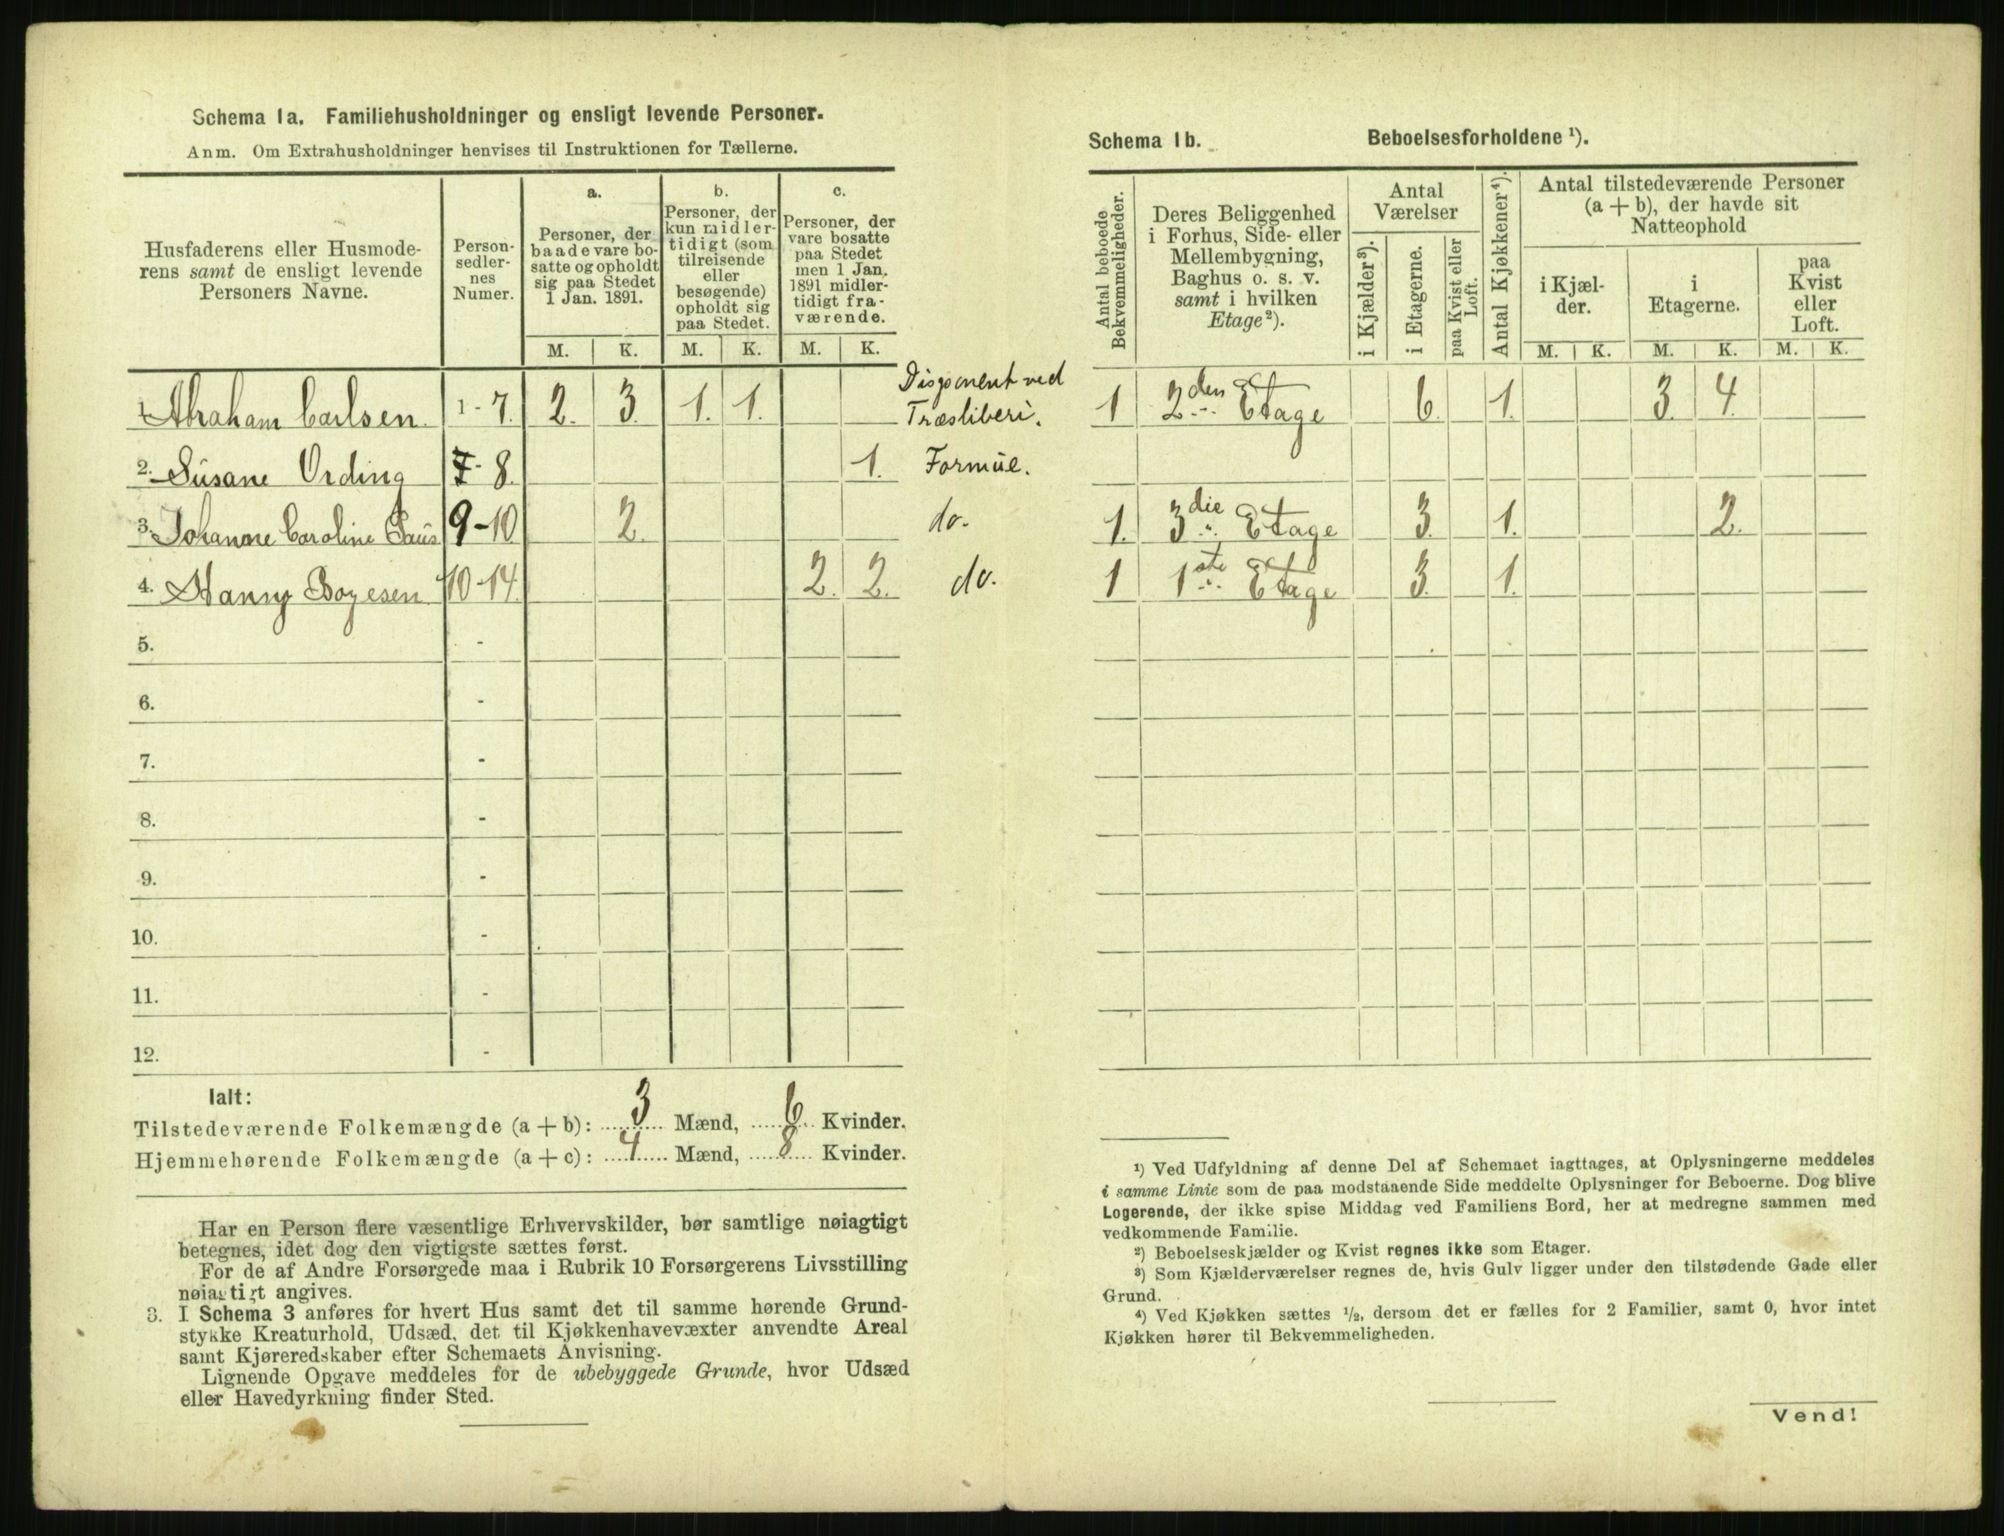 Schema 1a. Familiehusholdninger og ensligt levende Personer.
Anm. Om Extrahusholdninger henvises til Instruktionen for Tællerne.
Husfaderens eller Husmode-
rens samt de ensligt levende
Personers Navne.
Person-
sedler-
nes
Numer.
a.
Personer, der
baade vare bo-
satte og opholdt
sig paa Stedet
1 Jan. 1891.
b.
Personer, der
kun midler-
tidigt (som
tilreisende
eller
besøgende)
opholdt sig
paa Stedet.
c.
Personer, der
vare bosatte
paa Stedet
men 1 Jan.
1891 midler-
tidigt fra-
værende.
M. K. M. K. M. K.
1. Abraham Carlsen. 1 - 7. 2. 3. 1. 1. Disponent ved
Træsliberi.
2. Susane Ording 7 - 8. 1. Formue.
3. Johanne Caroline Paus 9 - 10 2. do.
4. Hanny Boyesen 10 - 14. 2. 2. do.
5. -
6. -
7. -
8. -
9. -
10. -
11. -
12. -
Ialt:
Tilstedeværende Folkemængde (a + b): 3 Mænd, 6 Kvinder.
Hjemmehørende Folkemængde (a + c): 4 Mænd, 8 Kvinder.
Har en Person flere væsentlige Erhvervskilder, bør samtlige nøiagtigt
betegnes, idet dog den vigtigste sættes først.
For de af Andre Forsørgede maa i Rubrik 10 Forsørgerens Livsstilling
nøiagtigt angives.
3. I Schema 3 anføres for hvert Hus samt det til samme hørende Grund-
stykke Kreaturhold, Udsæd, det til Kjøkkenhavevæxter anvendte Areal
samt Kjøreredskaber efter Schemaets Anvisning.
Lignende Opgave meddeles for de ubebyggede Grunde, hvor Udsæd
eller Havedyrkning finder Sted.
Schema 1b. Beboelsesforholdene ¹).
Antal beboede
Bekvemmeligheder.
Deres Beliggenhed
i Forhus, Side- eller
Mellembygning,
Baghus o. s. v.
samt i hvilken
Etage²).
Antal
Værelser
i Kjælder³).
i Etagerne.
paa Kvist eller
Loft.
Antal Kjøkkener⁴).
Antal tilstedeværende Personer
(a + b), der havde sit
Natteophold
i Kjæl-
der.
i
Etagerne.
paa
Kvist
eller
Loft.
M. K. M. K. M. K.
1 2den Etage 6. 1. 3. 4.
1. 3die Etage 3. 1. 2.
1 1ste Etage 3. 1.
¹) Ved Udfyldning af denne Del af Schemaet iagttages, at Oplysningerne meddeles
i samme Linie som de paa modstaaende Side meddelte Oplysninger for Beboerne. Dog blive
Logerende, der ikke spise Middag ved Familiens Bord, her at medregne sammen med
vedkommende Familie.
²) Beboelseskjælder og Kvist regnes ikke som Etager.
³) Som Kjælderværelser regnes de, hvis Gulv ligger under den tilstødende Gade eller
Grund.
⁴) Ved Kjøkken sættes ½, dersom det er fælles for 2 Familier, samt 0, hvor intet
Kjøkken hører til Bekvemmeligheden.
Vend!